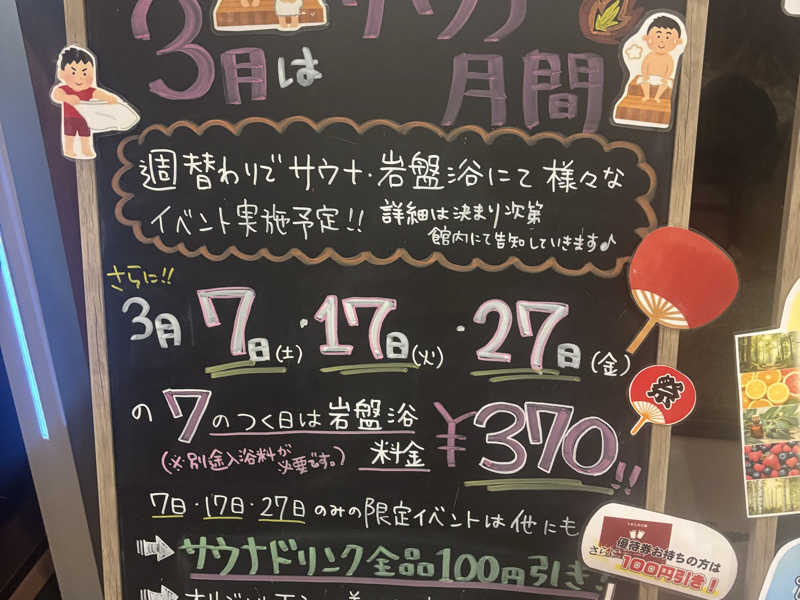 3月は
月間
週替わりで サウナ・岩盤浴にて 様々な
イベント実施予定!! 詳細は決まり次第
館内にて告知していきます♪
さらに!!
3月 7日(土)・17日(火)・27日(金)
の 7のつく日は 岩盤浴
(※別途入浴料が必要です。) 料金 ¥370!!
7日・17日・27日 のみの限定イベントは他にも
サウナドリンク全品100円引き!
祭
優待券お持ちの方は
さらに
100円引き!